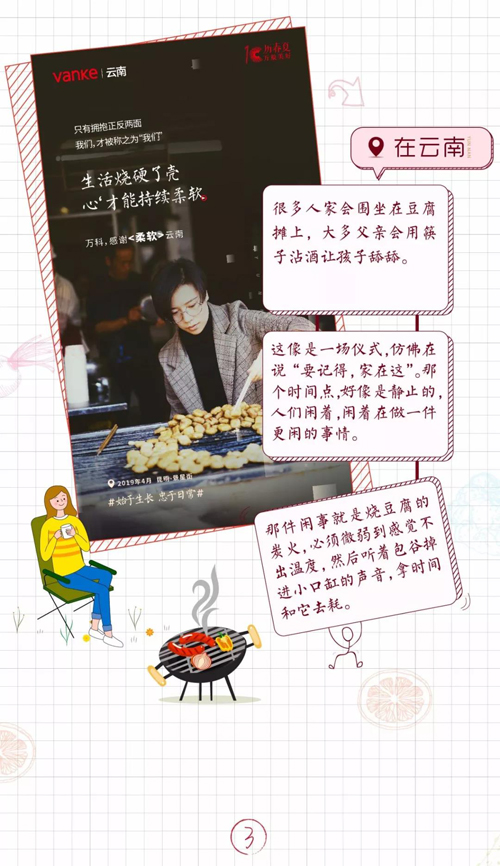 vanke | 云南
只有拥抱正反两面
我们,才被称之为“我们”
生活烧硬了壳
心 才能持续柔软
万科,感谢<柔软>云南
2019年4月 昆明·
#始于生长 忠于日常#
在云南
很多人家会围坐在豆腐
摊上，大多父亲会用筷
子沾酒让孩子舔舔。
这像是一场仪式,仿佛在
说“要记得,家在这”。那
个时间点,好像是静止的,
人们闲着,闲着在做一件
更闲的事情。
那件闲事就是烧豆腐的
炭火,必须微弱到感觉不
出温度,然后听着包谷掉
进小口缸的声音,拿时间
和它去耗。
3